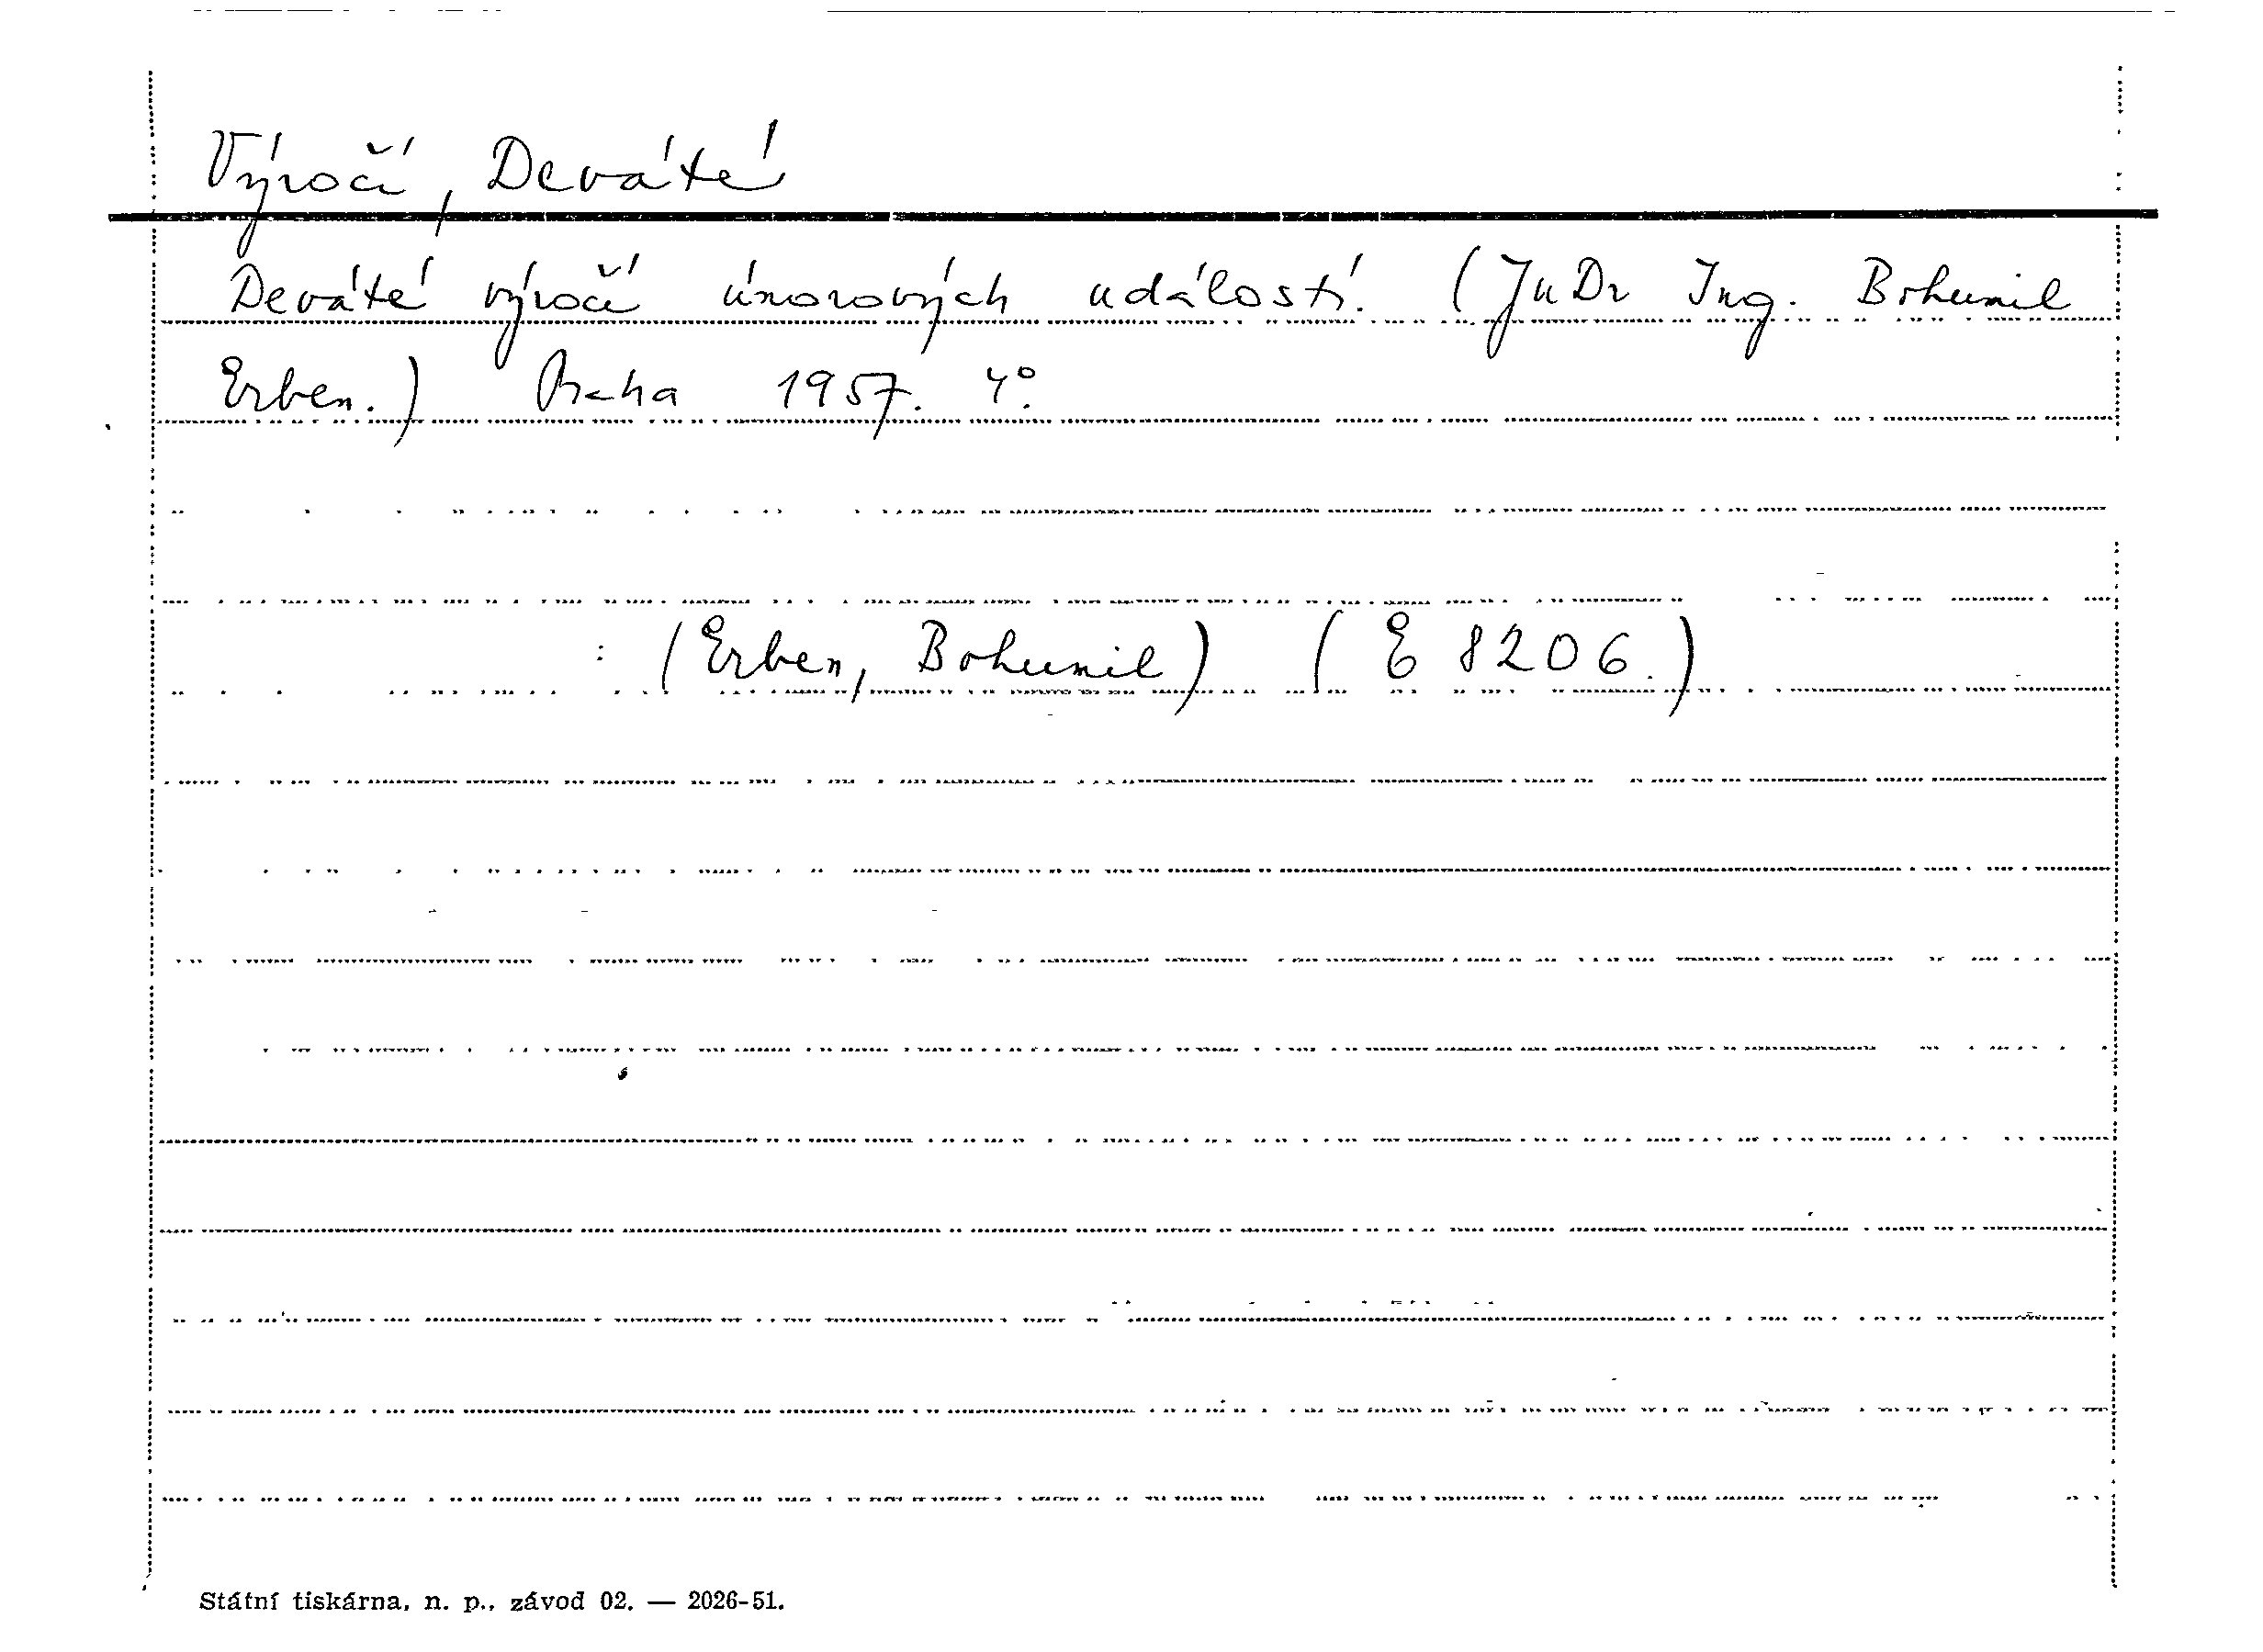 Výročí, Deváté
Deváté výročí únorových událostí. (JuDr Ing. Bohumil
Erben.) Praha 1957. 4°.
: (Erben, Bohumil) (E 8206.)
Státní tiskárna, n. p., závod 02. — 2026-51.